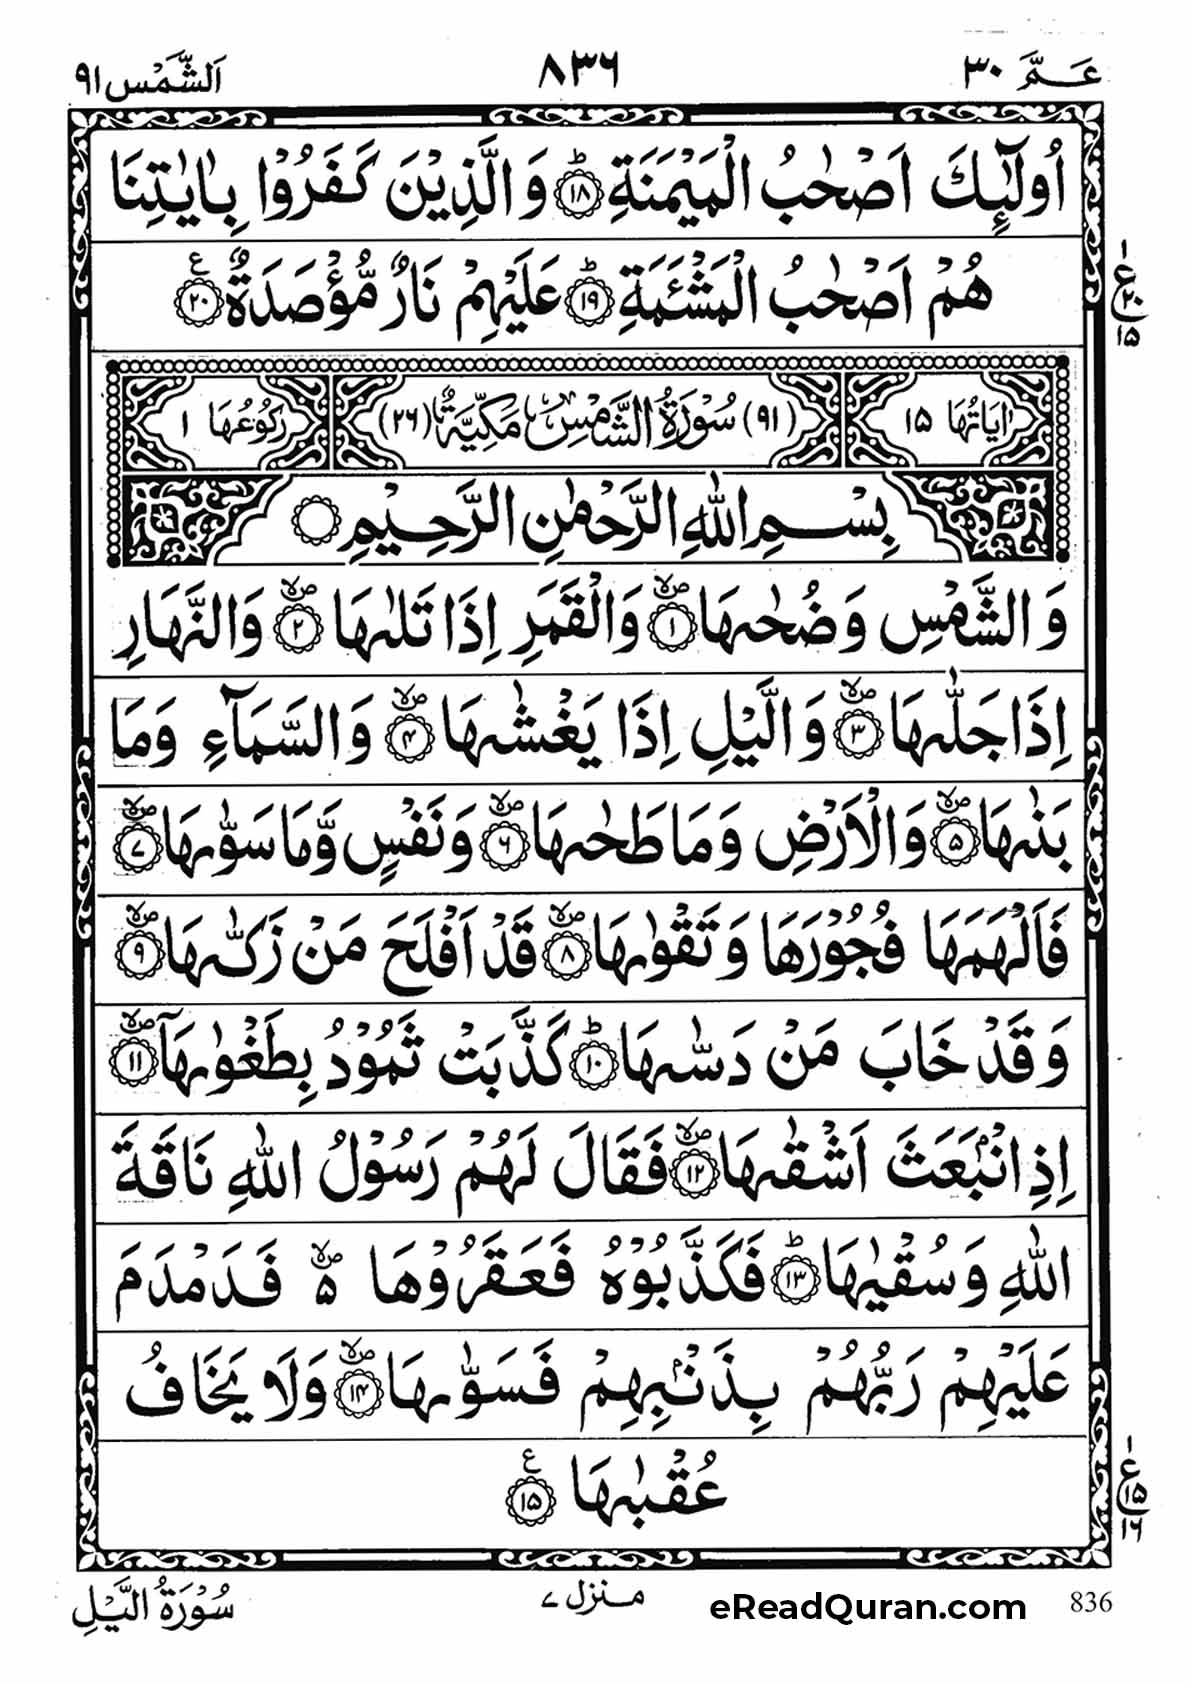 عَمَّ ٣٠
٨٣٦
اَلشَّمْس ٩١
اُولٰٓئِكَ اَصْحٰبُ الْمَيْمَنَةِ ؕ ﴿۱۸﴾ وَالَّذِيْنَ كَفَرُوْا بِاٰيٰتِنَا
هُمْ اَصْحٰبُ الْمَشْـَٔمَةِ ؕ ﴿۱۹﴾ عَلَيْهِمْ نَارٌ مُّؤْصَدَةٌ ﴿۲۰﴾ ع
١ ع ٢٠ ١٥
اٰيَاتُهَا ١٥
(٩١) سُوْرَةُ الشَّمْسِ مَكِّيَّةٌ (٢٦)
رُكُوْعُهَا ١
بِسْمِ اللّٰهِ الرَّحْمٰنِ الرَّحِيْمِ
وَالشَّمْسِ وَضُحٰىهَا ﴿۱﴾ صلا وَالْقَمَرِ اِذَا تَلٰىهَا ﴿۲﴾ صلا وَالنَّهَارِ
اِذَا جَلّٰىهَا ﴿۳﴾ صلا وَالَّيْلِ اِذَا يَغْشٰىهَا ﴿۴﴾ صلا وَالسَّمَآءِ وَمَا
بَنٰىهَا ﴿۵﴾ صلا وَالْاَرْضِ وَمَا طَحٰىهَا ﴿۶﴾ صلا وَنَفْسٍ وَّمَا سَوّٰىهَا ﴿۷﴾ صلا
فَاَلْهَمَهَا فُجُوْرَهَا وَتَقْوٰىهَا ﴿۸﴾ صلا قَدْ اَفْلَحَ مَنْ زَكّٰىهَا ﴿۹﴾ صلا
وَقَدْ خَابَ مَنْ دَسّٰىهَا ؕ ﴿۱۰﴾ كَذَّبَتْ ثَمُوْدُ بِطَغْوٰىهَاۤ ﴿۱۱﴾ صلا
اِذِ انْۢبَعَثَ اَشْقٰىهَا ﴿۱۲﴾ صلا فَقَالَ لَهُمْ رَسُوْلُ اللّٰهِ نَاقَةَ
اللّٰهِ وَسُقْيٰهَا ؕ ﴿۱۳﴾ فَكَذَّبُوْهُ فَعَقَرُوْهَا ۵ صلا فَدَمْدَمَ
عَلَيْهِمْ رَبُّهُمْ بِذَنْۢبِهِمْ فَسَوّٰىهَا ﴿۱۴﴾ صلا وَلَا يَخَافُ
عُقْبٰهَا ﴿۱۵﴾ ع
١ ع ١٥ ١٦
سُوْرَةُ الَّيْلِ
منزل ٧
eReadQuran.com
836